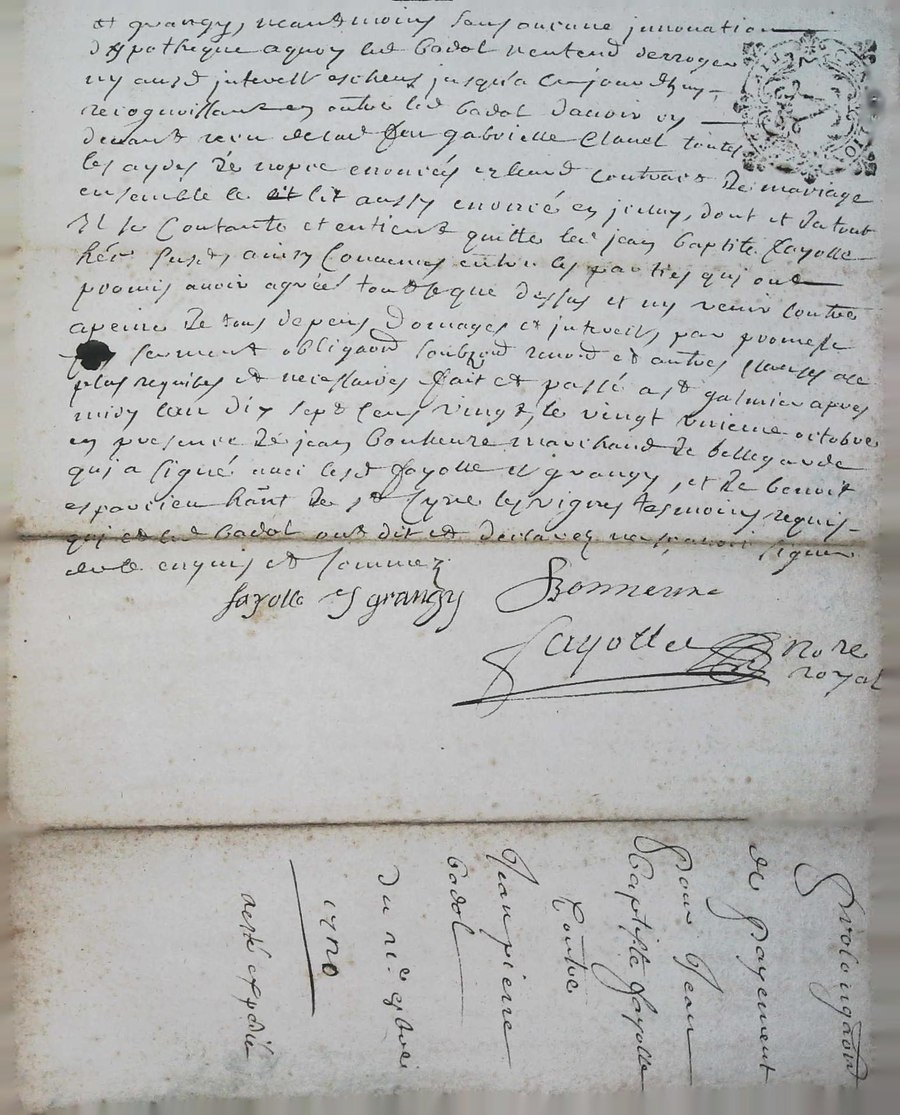 et grangy, neantmoins sans aucune innovation
d'ypotheque a quoy led badol n'entend derroger
ny aux d interests escheus jusqu'a ce jourdhuy,
recognoissant en outre led badol d'avoir cy
devant receu de lad feu gabrielle Clauel toutes
les aydes de nopce enoncés and contract de mariage
ensemble le lit aussy enoncé en jceluy, dont et du tout
Il se contante et en tient quitte led jean baptiste fayolle
ainsy convenus entre les parties qui ont
promis avoir agréés tout ce que dessus et ny venir contre
a peine de tous depens domages et interests, par promesse
serment obligaon soubzmon renon et autres clauses
plus requises et necessaires fait et passé a st galmier apres
midy l'an dix sept cens vingt, le vingt unieme octobre
en presence de jean bonneure marchand de bellegarde
qui a signé avec lesd fayolle et grangy, et de benoit
hant de st Cyre les vignes tesmoins requis
qui et led badol ont dit et declarez ne scavoir signer
de ce enquis et sommez
fayolle j grangy Bonneure
fayolle nore
royal
Prolongaon
de payement
Pour Jean
Baptiste fayolle
Contre
Jean pierre
badol
du 21e 8bre
1720